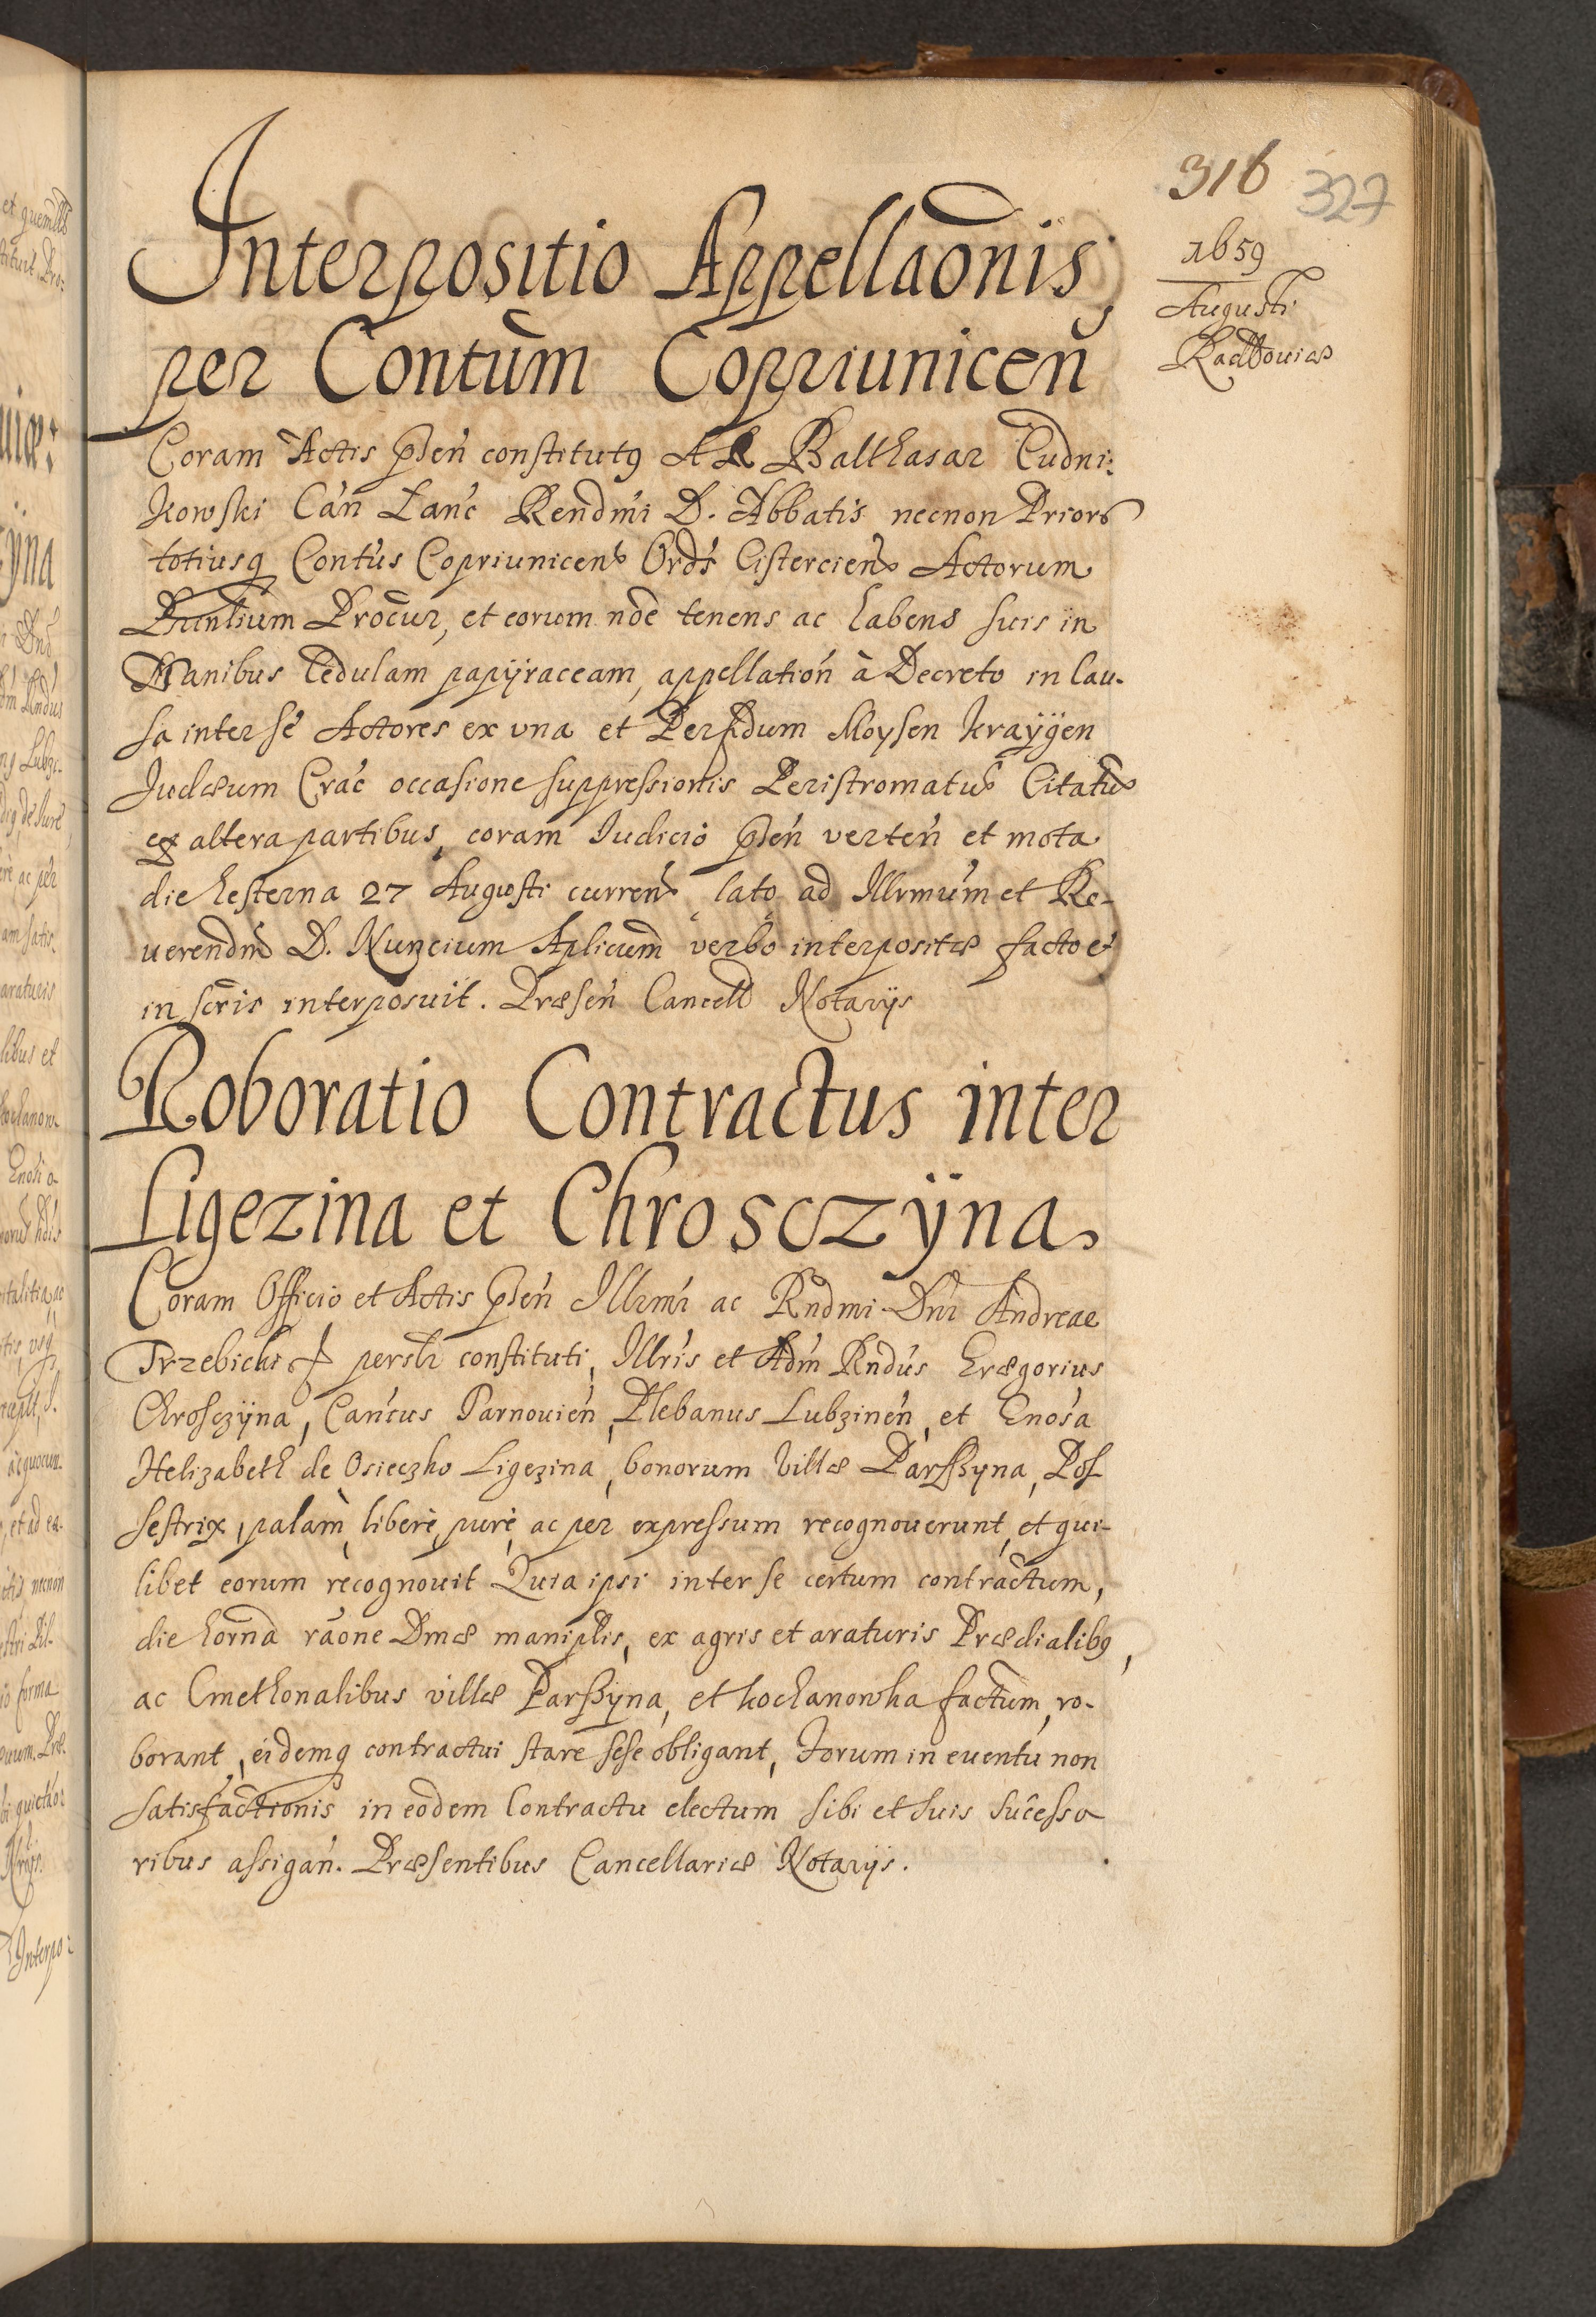 316 327
1659
Augusti
Interpositio Appellaonis
per Contum Copriunicen
Coram Actis pnsen constitutq A R Balthasar Cudni:
kowski Can Lanc Rendmi D. Abbatis necnon Prioris
totiusq Contus Copriunicens Ords Cistercien Actorum
Procur, et eorum nōe tenens ac habens suis in
Manibus Cedulam papÿraceam, appellation à Decreto in Cau-
sa inter sé Actores ex vna et Perfidum Moysen Kraÿÿen
Judæum Crac occasione suppressionis Peristromatus Citatus
ex altera partibus, coram Iudicio pnsen verten et mota
die hesterna 27 Augusti curren lato ad Illrmum et Re-
uerendm D. Nuncium Aplicum verbo interpositæ facto et
in scris interposuit. Præsen Cancell Notarijs
Roboratio Contractus inter
Ligezina et Chrosczÿna
Coram Officio et Actis pnsen Illrmi ac Rndmi Dni Andreae
Trzebicki perslr constituti, Illris et Adm Rndus Grægorius
Chrosczÿna, Canċus Tarnouien, Plebanus Lubzinen, et Gnosa
Helizabeth de Osieczko Ligezina, bonorum Villæ Parszyna, Pos
sestrix, palam, liberè, purè, ac per expressum recognouerunt, et qui-
libet eorum recognouit Quia ipsi inter se certum contractum,
die horna raone Dmæ maniplis, ex agris et araturis Prædialibq,
ac Cmethonalibus villæ Parszyna, et kochanowka factum, ro-
borant, eidemq contractui stare sese obligant, Forum in euentu non
satisfactionis in eodem Contractu electum sibi et suis sucesso
ribus assigan. Præsentibus Cancellariæ Notarijs.